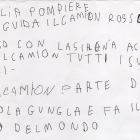 LIA POMPIERE
GUIDA IL CAMION ROSS
SO CON LA SIRENA AC
IL CAMION TUTTI I GU
I-
CAMION PARTE D
OLA GUNGLA E FA IL
O DEL MONDO